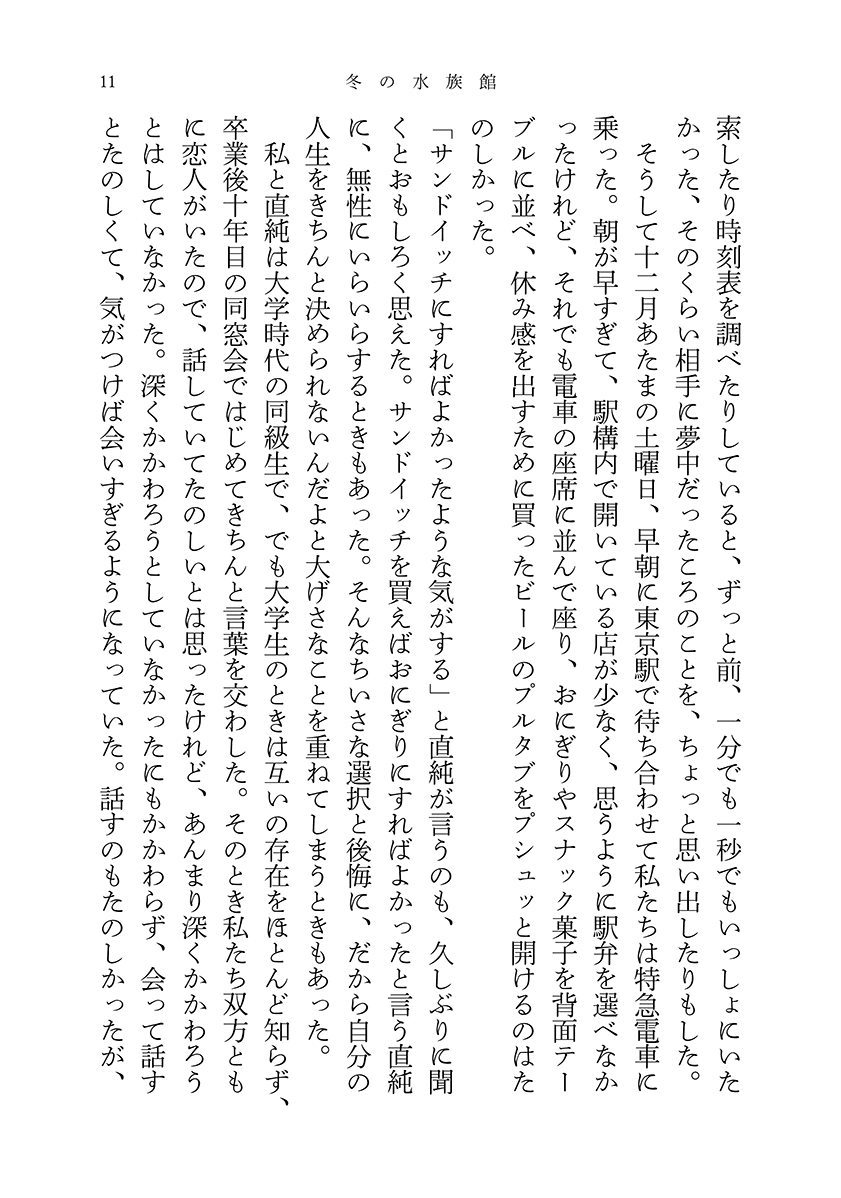 11
冬の水族館
索したり時刻表を調べたりしていると、ずっと前、一分でも一秒でもいっしょにいた
かった、そのくらい相手に夢中だったころのことを、ちょっと思い出したりもした。
そうして十二月あたまの土曜日、早朝に東京駅で待ち合わせて私たちは特急電車に
乗った。朝が早すぎて、駅構内で開いている店が少なく、思うように駅弁を選べなか
ったけれど、それでも電車の座席に並んで座り、おにぎりやスナック菓子を背面テー
ブルに並べ、休み感を出すために買ったビールのプルタブをプシュッと開けるのはた
のしかった。
「サンドイッチにすればよかったような気がする」と直純が言うのも、久しぶりに聞
くとおもしろく思えた。サンドイッチを買えばおにぎりにすればよかったと言う直純
に、無性にいらいらするときもあった。そんなちいさな選択と後悔に、だから自分の
人生をきちんと決められないんだよと大げさなことを重ねてしまうときもあった。
私と直純は大学時代の同級生で、でも大学生のときは互いの存在をほとんど知らず、
卒業後十年目の同窓会ではじめてきちんと言葉を交わした。そのとき私たち双方とも
に恋人がいたので、話していてたのしいとは思ったけれど、あんまり深くかかわろう
とはしていなかった。深くかかわろうとしていなかったにもかかわらず、会って話す
とたのしくて、気がつけば会いすぎるようになっていた。話すのもたのしかったが、